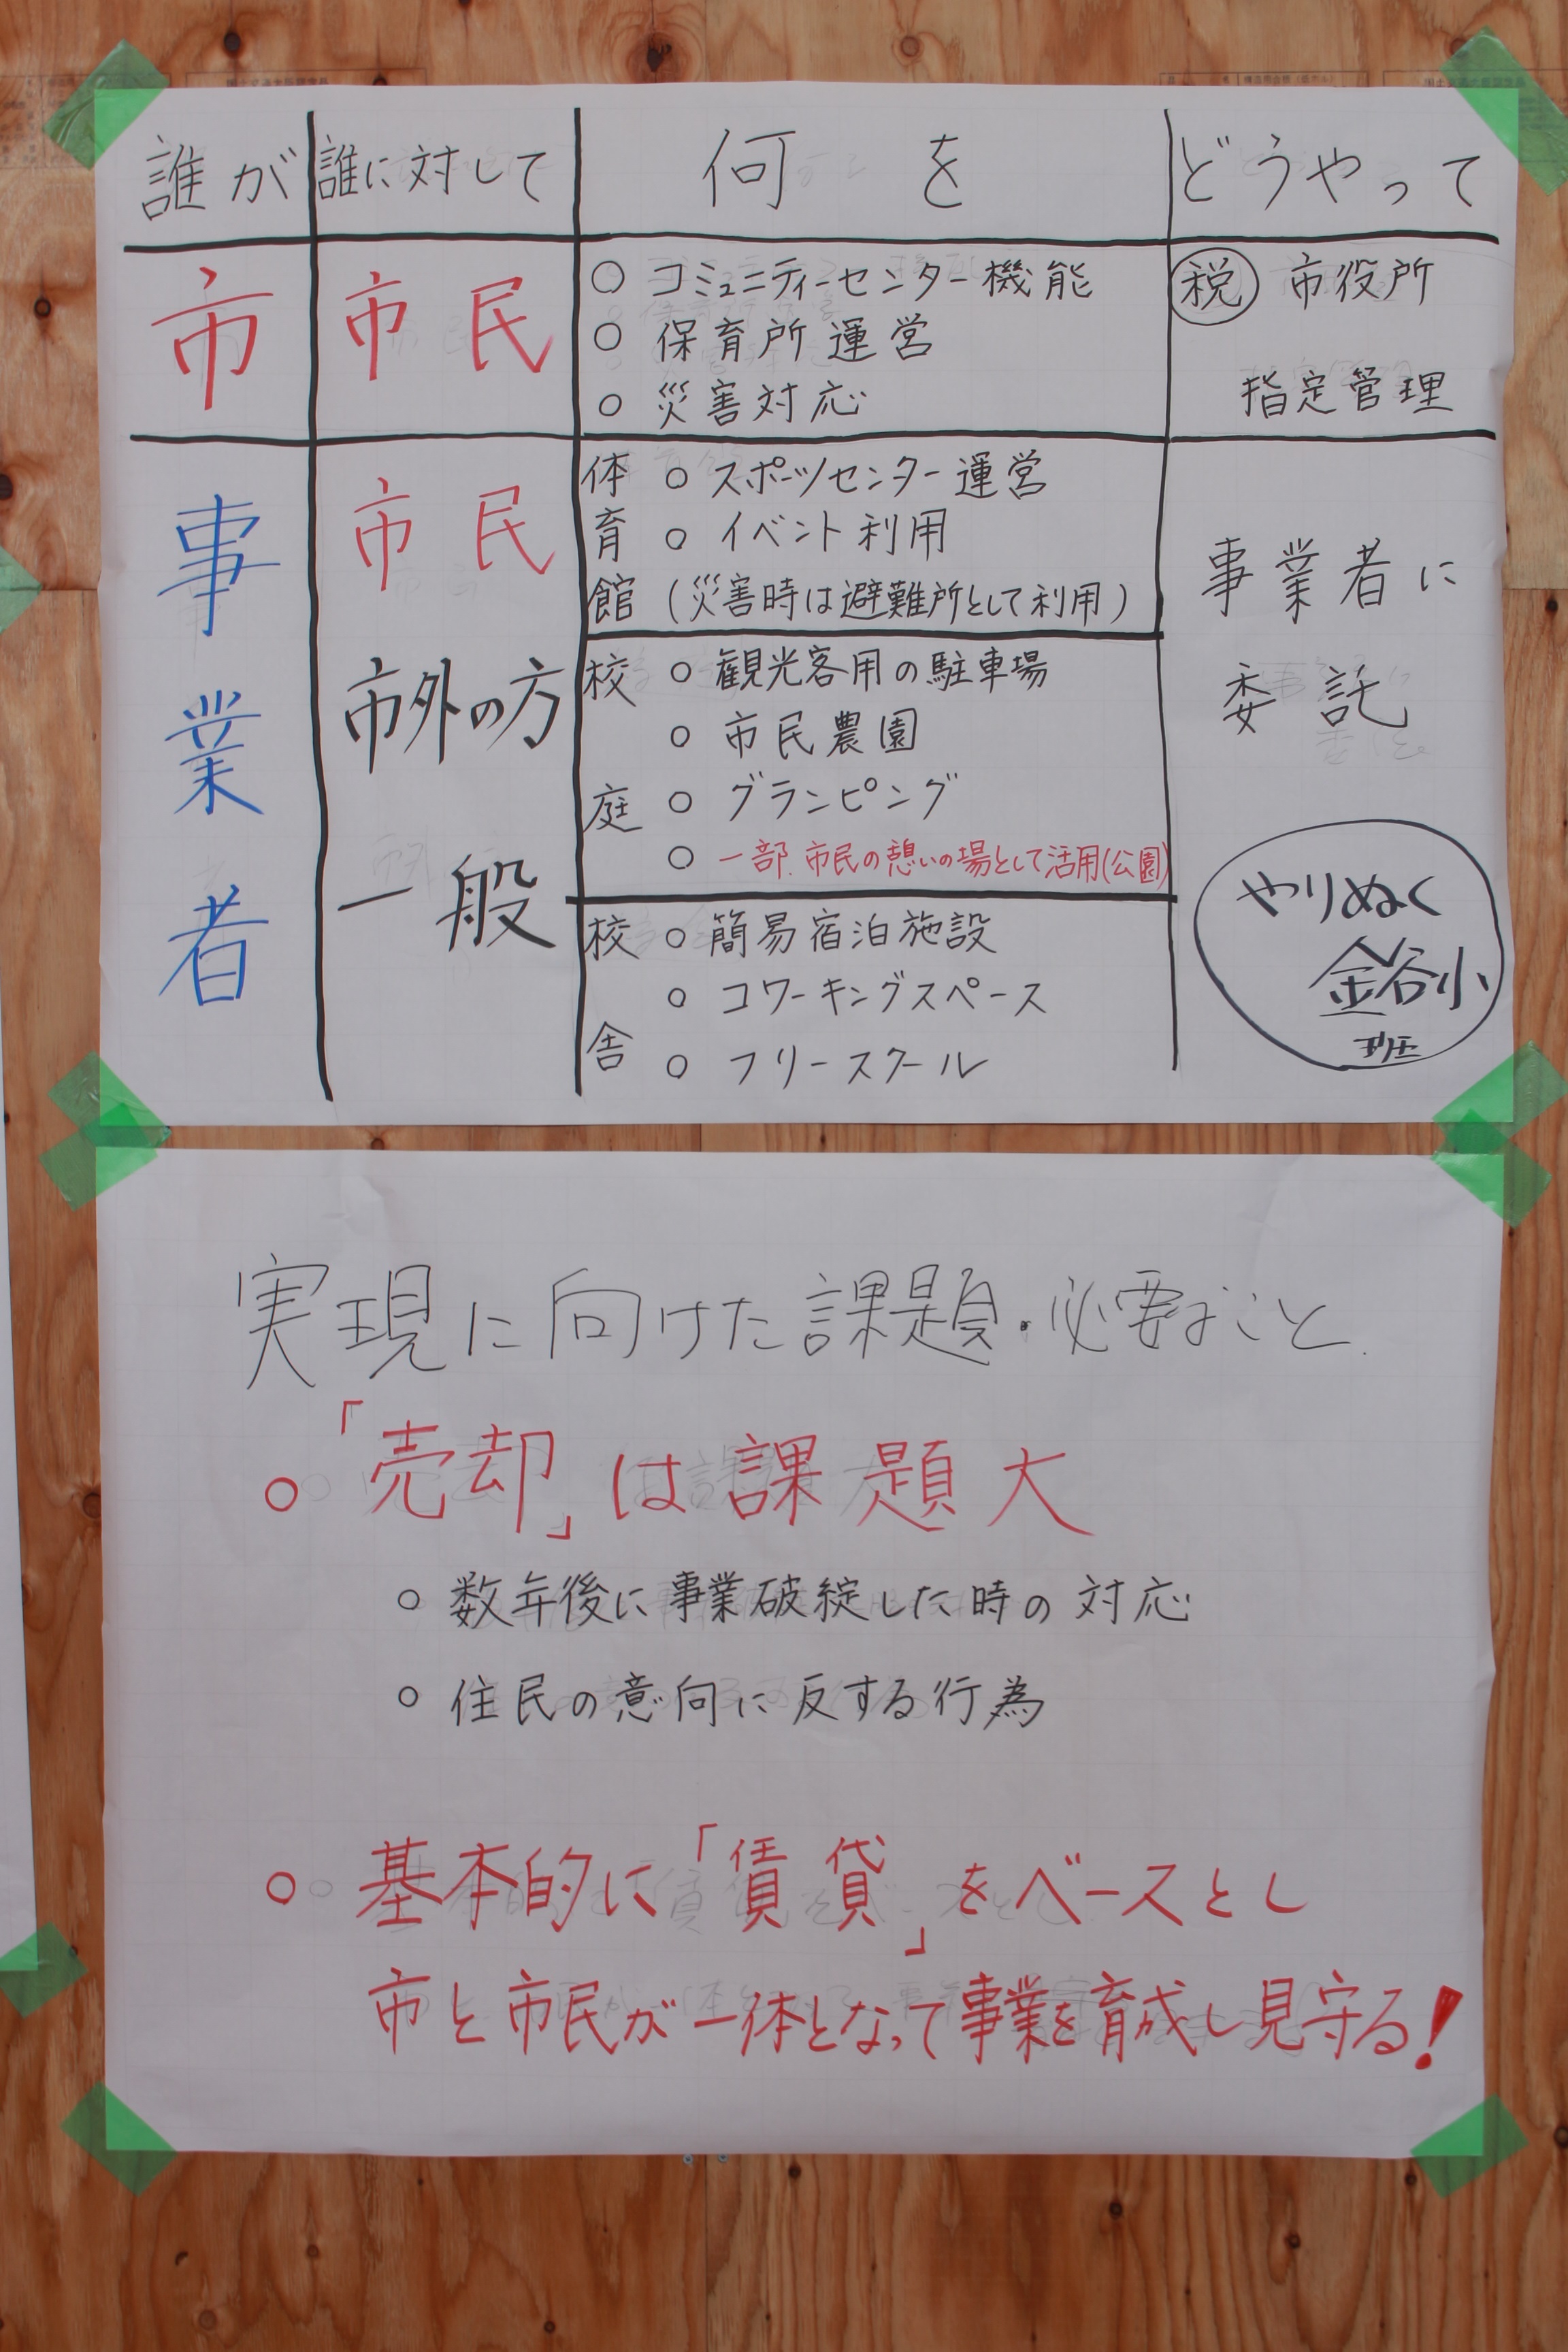 誰が 誰に対して 何を どうやって
市 市民
○ コミュニティーセンター機能
○ 保育所運営
○ 災害対応
税 市役所
指定管理
事業者
市民
市外の方
一般
体育館
○ スポーツセンター運営
○ イベント利用
(災害時は避難所として利用)
校庭
○ 観光客用の駐車場
○ 市民農園
○ グランピング
○ 一部.市民の憩いの場として活用(公園)
校舎
○ 簡易宿泊施設
○ コワーキングスペース
○ フリースクール
事業者に
委託
やりぬく
金谷小
班
実現に向けた課題・必要なこと.
○「売却」は課題大
○ 数年後に事業破綻した時の対応
○ 住民の意向に反する行為
○ 基本的に「賃貸」をベースとし
市と市民が一体となって事業を育成し見守る!